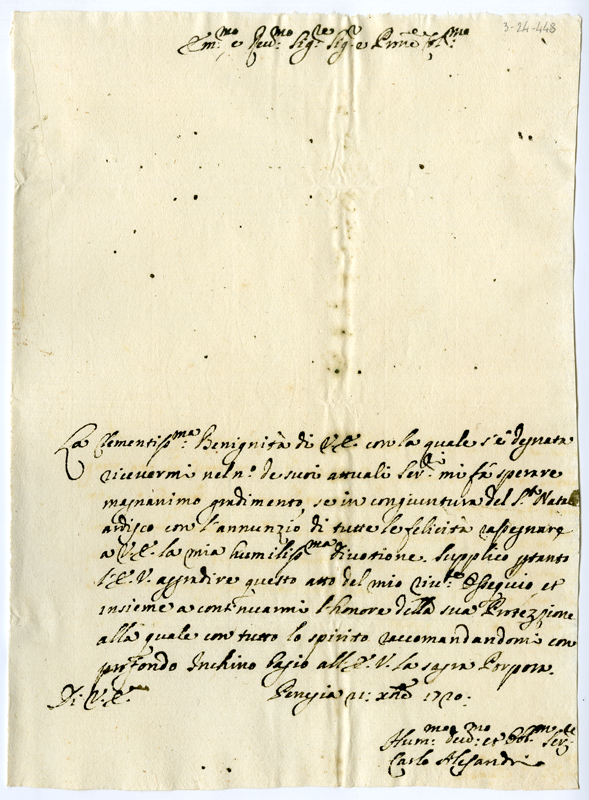 3-24-448
Em:mo e Rev:mo Sig:re Sig:re e Prone Col:mo
La Clementiss:ma Benignità di V.E. con la quale s'è degnata
ricevermi nel n.o de suoi attuali Ser:di mi fà sperare
magnanimo gradimento, se in congiuntura del S.to Nata
ardisco con l'annunzio di tutte le felicità rassegnare
a V.E. la mia humiliss:ma divotione. Supplico ptanto
l'E.V. aggradire questo atto del mio riv:te Ossequio, et
insieme a continuarmi l'honore della sua Protezzione
alla quale con tutto lo spirito raccomandandomi con
profondo Inchino bagio all'E.V. la sagra Porpora.
Di V.E. Perugia 21: Xbre 1720:
Hum:mo Dev:mo et Obl:mo Ser:re
Carlo Alesandri